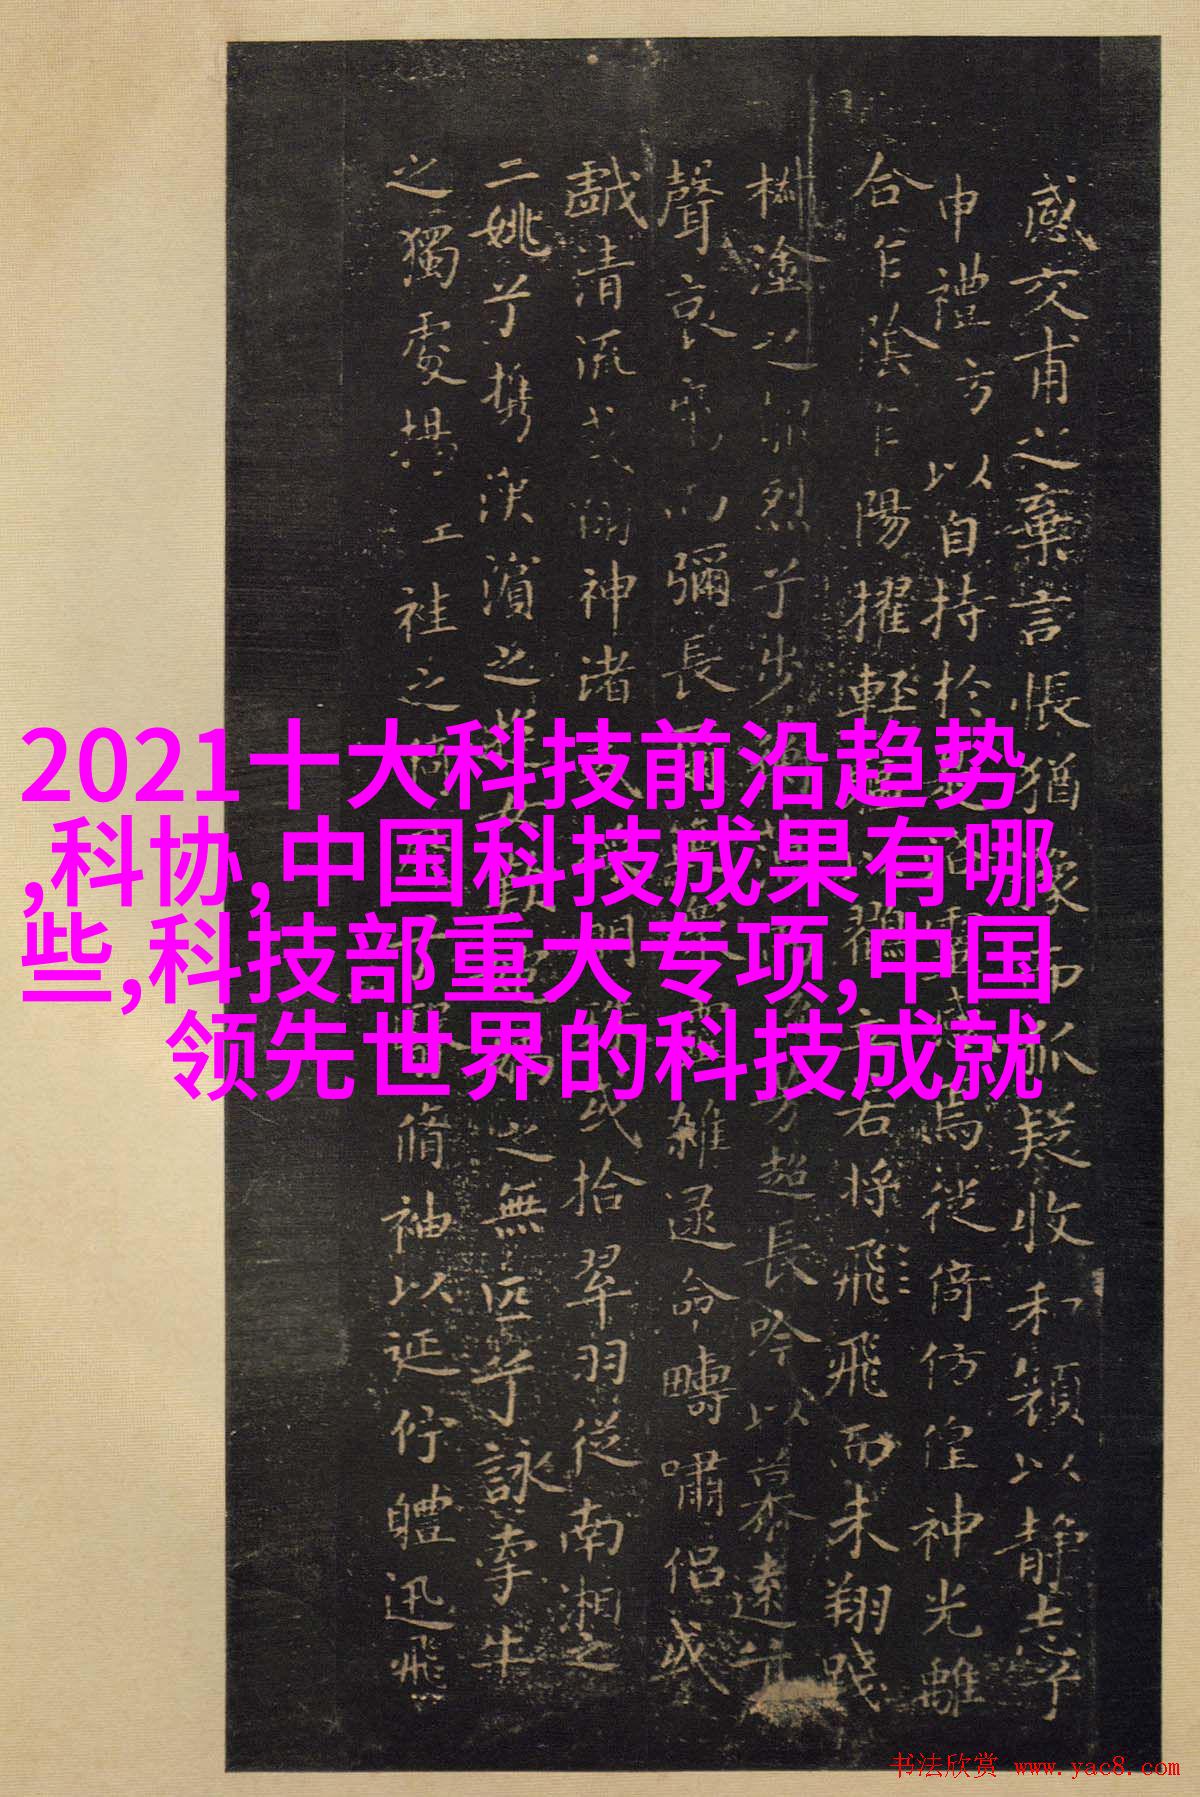 2021十大科技前沿趋势
,科协,中国科技成果有哪
些,科技部重大专项,中国
领先世界的科技成就
感交甫之棄言悵猶豫而狐疑收和顏以静志兮
申禮方以自持於焉從倚仿偟神光離
合乍陰乍陽擢輕立若將飛飛而未翔踐
椒塗之郁烈兮步芳超長吟以慕遠兮
聲哀厲而彌長爾雜遝命疇嘯侶或
戲清流或翔神渚明或拾翠羽從南湘之
二姚兮攜漢濱之女之無匹兮詠牽牛
之獨處揚袿之脩袖以延佇體迅飛
书法欣赏 www.yac8.com